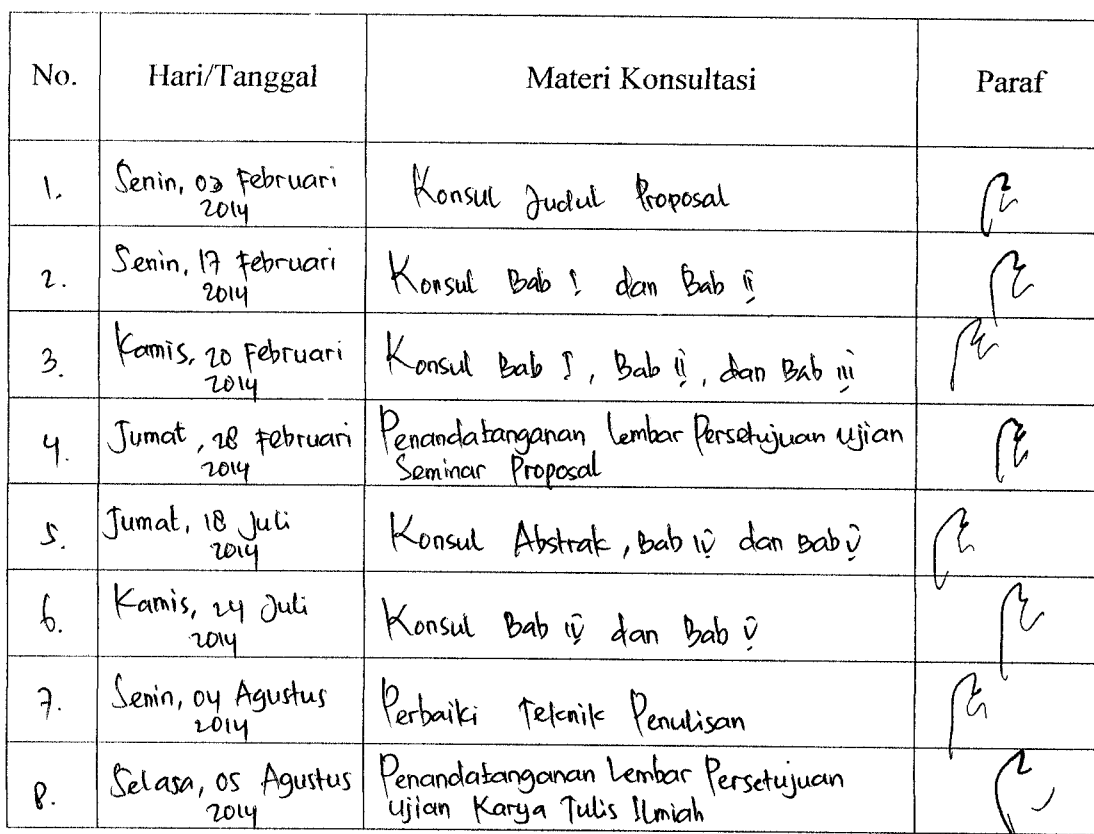 No. Hari/Tanggal Materi Konsultasi Paraf
1. Senin, 03 Februari Konsul Judul Proposal
2014
2. Senin, 17 Februari Konsul Bab I dan Bab II
2014
3. Kamis, 20 Februari Konsul Bab I, Bab II, dan Bab III
2014
4. Jumat, 28 Februari Penandatanganan Lembar Persetujuan Ujian
2014 Seminar Proposal
5. Jumat, 18 Juli Konsul Abstrak, Bab IV dan Bab V
2014
6. Kamis, 24 Juli Konsul Bab IV dan Bab V
2014
7. Senin, 04 Agustus Perbaiki Teknik Penulisan
2014
8. Selasa, 05 Agustus Penandatanganan Lembar Persetujuan
2014 Ujian Karya Tulis Ilmiah